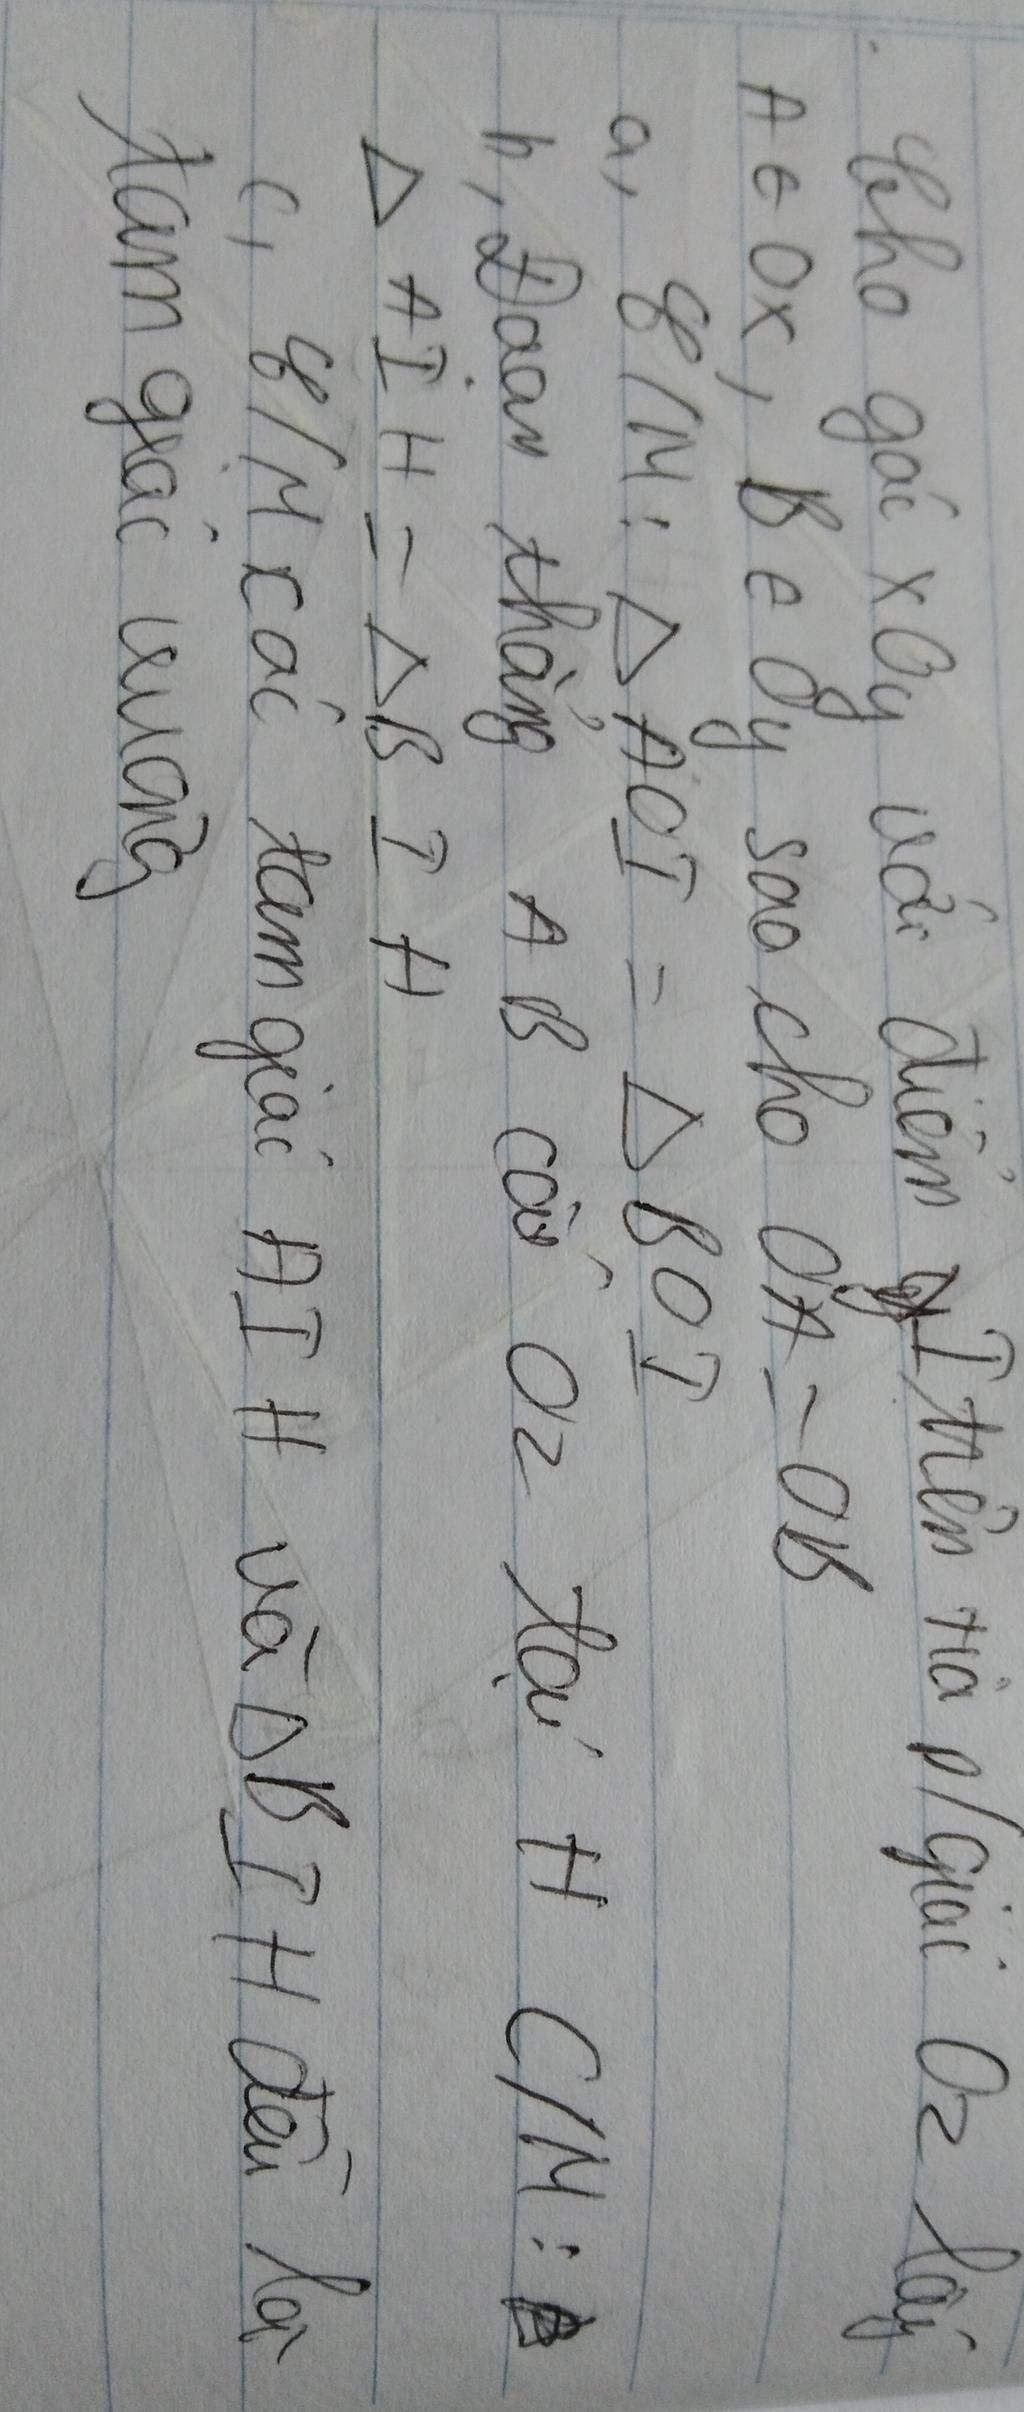 Cho góc xOy với điểm I trên tia p/giác Oz lấy
A e Ox, B e Oy sao cho OA = OB
a, C/M: Δ AOI = Δ BOI
b, Đoạn thẳng AB cắt Oz tại H C/M:
Δ AIH = Δ BIH
c, C/M các tam giác AIH và Δ BIH đều là
tam giác vuông